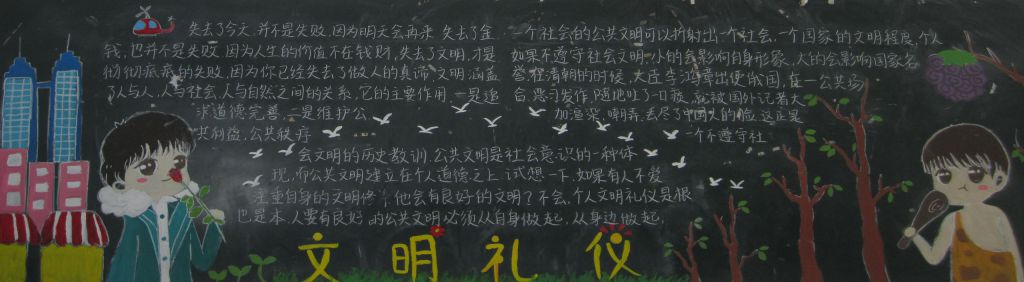 失去了今天,并不是失败,因为明天会再来 失去了金
钱,也并不是失败 因为人生的价值不在钱财,失去了文明,才是
彻彻底底的失败,因为你已经失去了做人的真谛 文明涵盖
了人与人,人与社会,人与自然之间的关系,它的主要作用,一是追
求道德完善,二是维护公
共利益,公共秩序
一个社会的公共文明可以折射出一个社会,一个国家的文明程度,个人
如果不遵守社会文明,小的会影响自身形象,大的会影响国家名
誉.在清朝的时候,大臣李鸿章出使俄国,在一公共场
合,恶习发作,随地吐了一口痰,就被国外记者大
加渲染,嘲弄,丢尽了中国人的脸,这正是
一个不遵守社
会文明的历史教训,公共文明是社会意识的一种体
现,而公共文明建立在个人道德之上,试想一下,如果有人不爱
注重自身的文明修,他会有良好的文明?不会,个人文明礼仪是根
也是本,人要有良好的公共文明,必须从自身做起,从身边做起,
文明礼仪